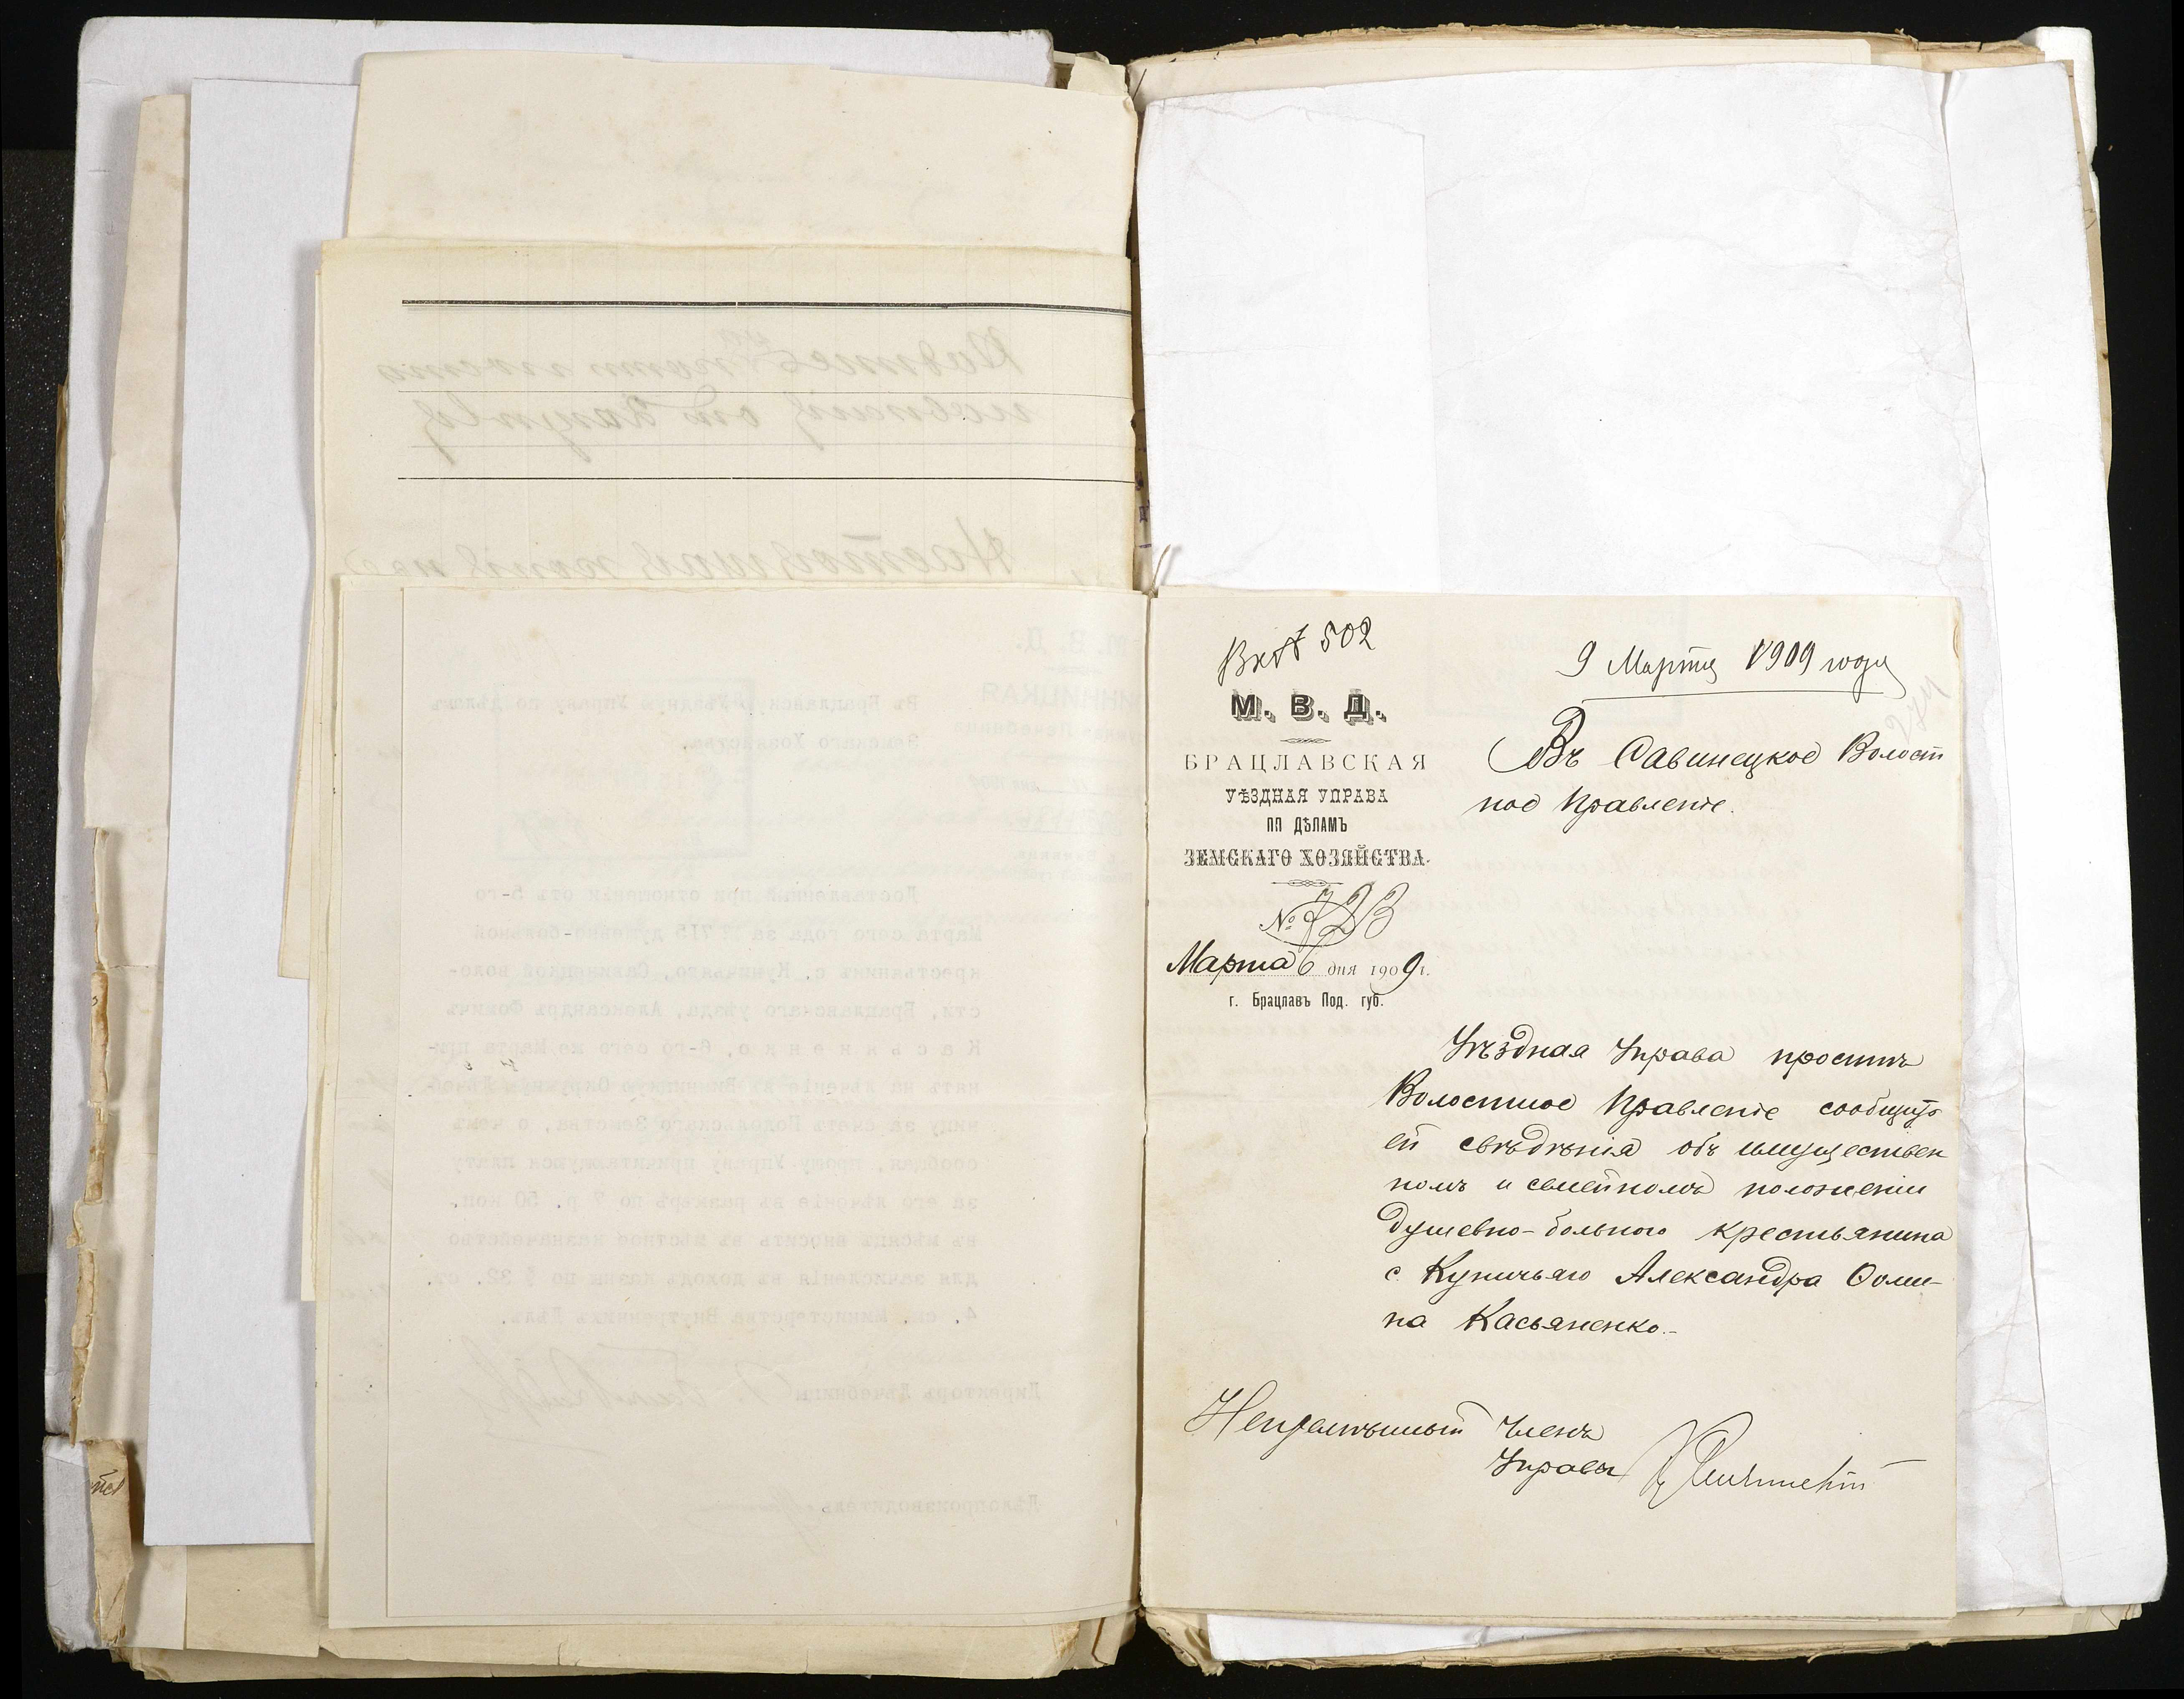 Вх № 502
9 Марта 1909 года
М. В. Д.
БРАЦЛАВСКАЯ
УѢЗДНАЯ УПРАВА
ПО ДѢЛАМЪ
ЗЕМСКАГО ХОЗЯЙСТВА.
№ 723
Марта 6 дня 1909 г.
г. Брацлавъ Под. губ.
Въ Савинецкое Волост
ное Правленіе.
Уѣздная Управа проситъ
Волостное Правленіе сообщить
ей свѣдѣнія объ имуществен
номъ и семейномъ положеніи
душевно-больного крестьянина
с. Куничьяго Александра Ѳоми-
на Касьяненко.-
Непремѣнный Членъ
Управы
Въ Брацлавскую Уѣздную Управу по дѣламъ
Земскаго Хозяйства.
Доставленный при отношеніи отъ 5-го
Марта сего года за № 715 душевно-больной
крестьянинъ с. Куничьяго, Савинецкой воло-
сти, Брацлавскаго уѣзда, Александръ Фомичъ
Касьяненко, 6-го сего же Марта при-
нятъ на лѣченіе въ Винницкую Окружную Лѣчеб-
ницу за счетъ Подольскаго Земства, о чемъ
сообщая, прошу Управу причитающуюся плату
за его лѣченіе въ размѣрѣ по 7 р. 50 коп.
въ мѣсяцъ вносить въ мѣстное казначейство
для зачисленія въ доходъ казны по § 32, ст.
4, см. Министерства Внутреннихъ Дѣлъ.
Директоръ Лѣчебницы
Дѣлопроизводитель